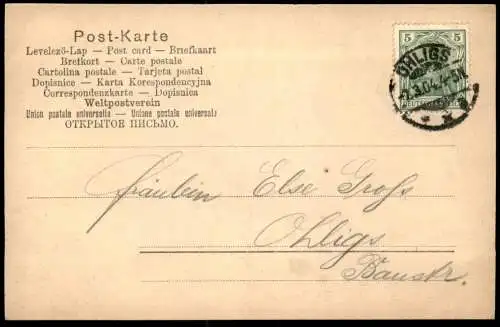 Post-Karte
Levelező-Lap — Post card — Briefkaart
Brefkort — Carte postale
Cartolina postale — Tarjeta postal
Dopisnice — Karta Korespondencyjna
Correspondenzkarte — Dopisnica
Weltpostverein
Union postale universelle — Unione postale universale
ОТКРЫТОЕ ПИСЬМО.
5 5
OHLIGS
3.04.
DEUTSCHES REICH
Fräulein Else Groß
Ohligs
Baustr.